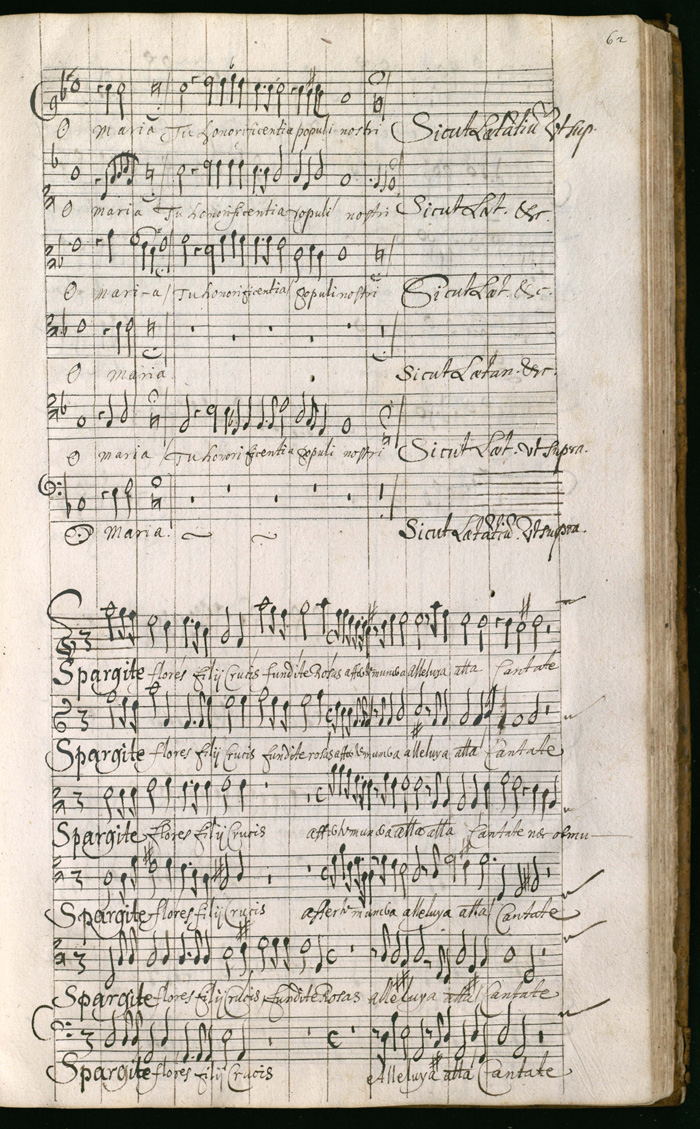 62
O Maria Tu honorificentia populi nostri Sicut Lætatiũ Vt sup.
O maria Tu honorificentia populi nostri Sicut Læt. &c.
O maria Tu honorificentia populi nostri Sicut Læt. &c.
O maria Sicut Lætan. &c.
O maria Tu honorificentia populi nostri Sicut Læt. vt supra.
O Maria. Sicut Lætatiũ. Vt supra
Spargite flores filij Crucis fundite Rosas alleluya alla Cantate
Spargite flores filij Crucis fundite rosas alleluya alla Cantate
Spargite flores filij Crucis alla alla Cantate
Spargite flores filij Crucis alleluya alla Cantate
Spargite flores filij Crucis fundite Rosas alleluya alla Cantate
Spargite flores filij Crucis Alleluya alla Cantate